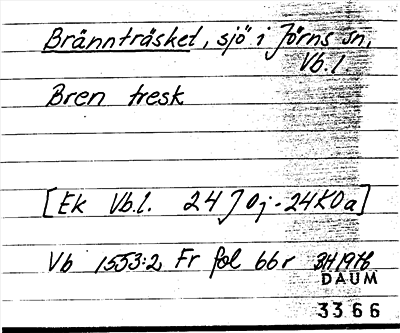 Brännträsket, sjö i Jörns sn,
Vb.l
Bren tresk
[Ek Vb.l. 24 J 0j - 24 K 0a]
Vb 1553:2 Fr fol 66 r
DAUM
3366